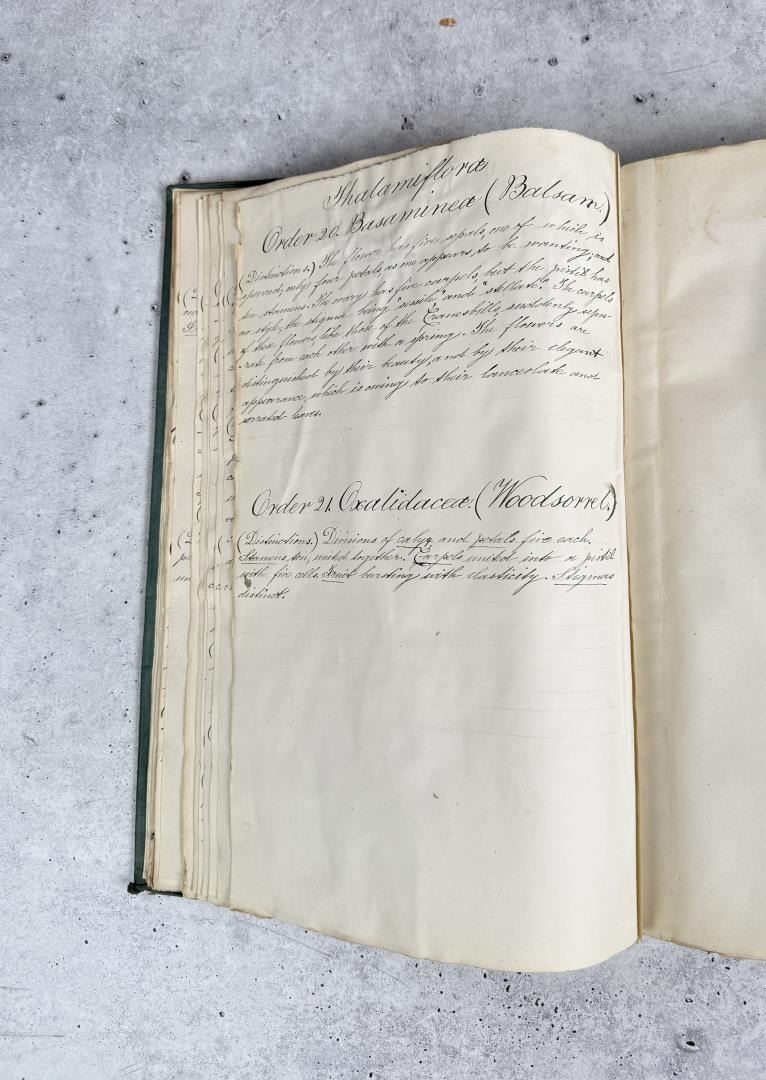 Thalamifloræ
Order 20. Basamineæ (Balsam.)
(Distinctions.) The flower has five sepals, one of which is
spurred; only four petals, as one appears to be wanting, and
ten stamens. The ovary has five carpels, but the pistil has
no style, the stigma being "sessile" and "stellate". The carpels
of these flowers, like those of the Cranesbills, suddenly sepa-
rate from each other with a spring. The flowers are
distinguished by their beauty, and by their elegant
appearance, which is owing to their lanceolate and
serrated leaves.
Order 21. Oxalidaceæ. (Woodsorrel.)
(Distinctions.) Divisions of calyx and petals five each.
Stamens, ten, united together. Carpels united into a pistil
with five cells. Fruit bursting with elasticity. Stigmas
distinct.